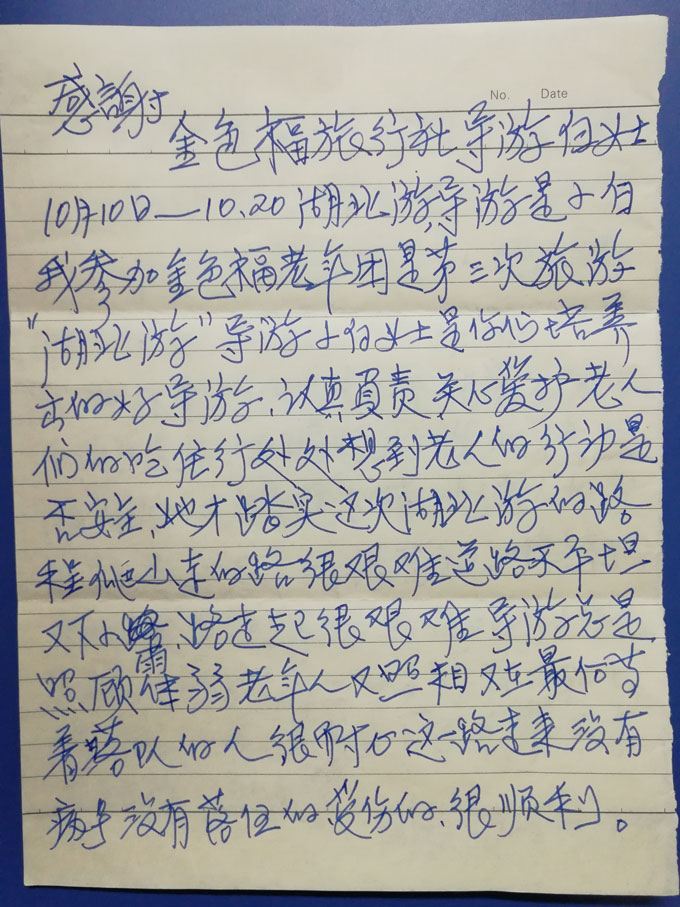 No. Date
感謝
金色福旅行社导游白女士
10月10日—10.20湖北游,导游是小白
我参加金色福老年团是第三次旅游
"湖北游"导游小白女士是你们培养
出的好导游,认真負责关心爱护老人
们的吃住行处处想到老人的行动是
否安全,她才踏实这次湖北游的路
程爬山走的路很艰难道路不平坦
又下小雨,路走起很艰难导游总是
照顾体弱老年人又照相又在最后等
着落队的人很耐心这一路走来没有
病号没有落伍的受伤的,很顺利。